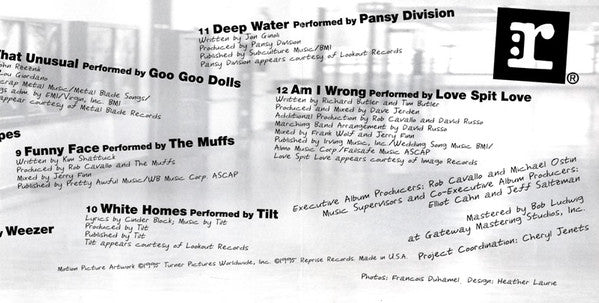 11 Deep Water Performed by Pansy Division
Written by Jon Ginoli
Produced by Pansy Division
Published by Subculture Music/BMI
Pansy Division appears courtesy of Lookout Records
r
®
That Unusual Performed by Goo Goo Dolls
John Rzeznik
Lou Giordano
Scrap Metal Music/Metal Blade Songs/
gs adm by EMI/Virgin, Inc. BMI
appear courtesy of Metal Blade Records
pes
12 Am I Wrong Performed by Love Spit Love
Written by Richard Butler and Tim Butler
Produced and Mixed by Dave Jerden
Additional Production by Rob Cavallo and David Russo
Marching Band Arrangement by David Russo
Mixed by Frank Wolf and Jerry Finn
Published by Irving Music, Inc./Wedding Song Music BMI/
Almo Music Corp./Failsafe Music ASCAP
Love Spit Love appears courtesy of Imago Records
9 Funny Face Performed by The Muffs
Written by Kim Shattuck
Produced by Rob Cavallo and The Muffs
Mixed by Jerry Finn
Published by Pretty Awful Music/WB Music Corp. ASCAP
10 White Homes Performed by Tilt
Lyrics by Cinder Block; Music by Tilt
Produced by Tilt
Published by Tilt
Tilt appears courtesy of Lookout Records
y Weezer
Executive Album Producers; Rob Cavallo and Michael Ostin
Music Supervisors and Co-Executive Album Producers;
Elliot Cahn and Jeff Saltzman
Mastered by Bob Ludwig
at Gateway Mastering Studios, Inc.
Project Coordination: Cheryl Jenets
Motion Picture Artwork ©1995 Turner Pictures Worldwide, Inc. ©1995 Reprise Records. Made in U.S.A.
Photos; Francois Duhamel, Design; Heather Laurie